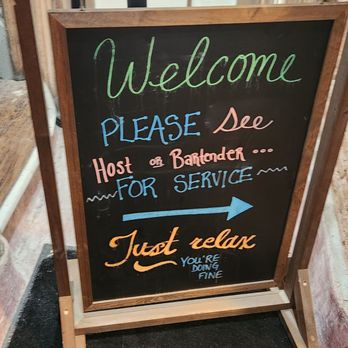 Welcome
PLEASE See
Host or Bartender ...
~~FOR SERVICE~~
→
Just relax
YOU'RE
DOING
FINE